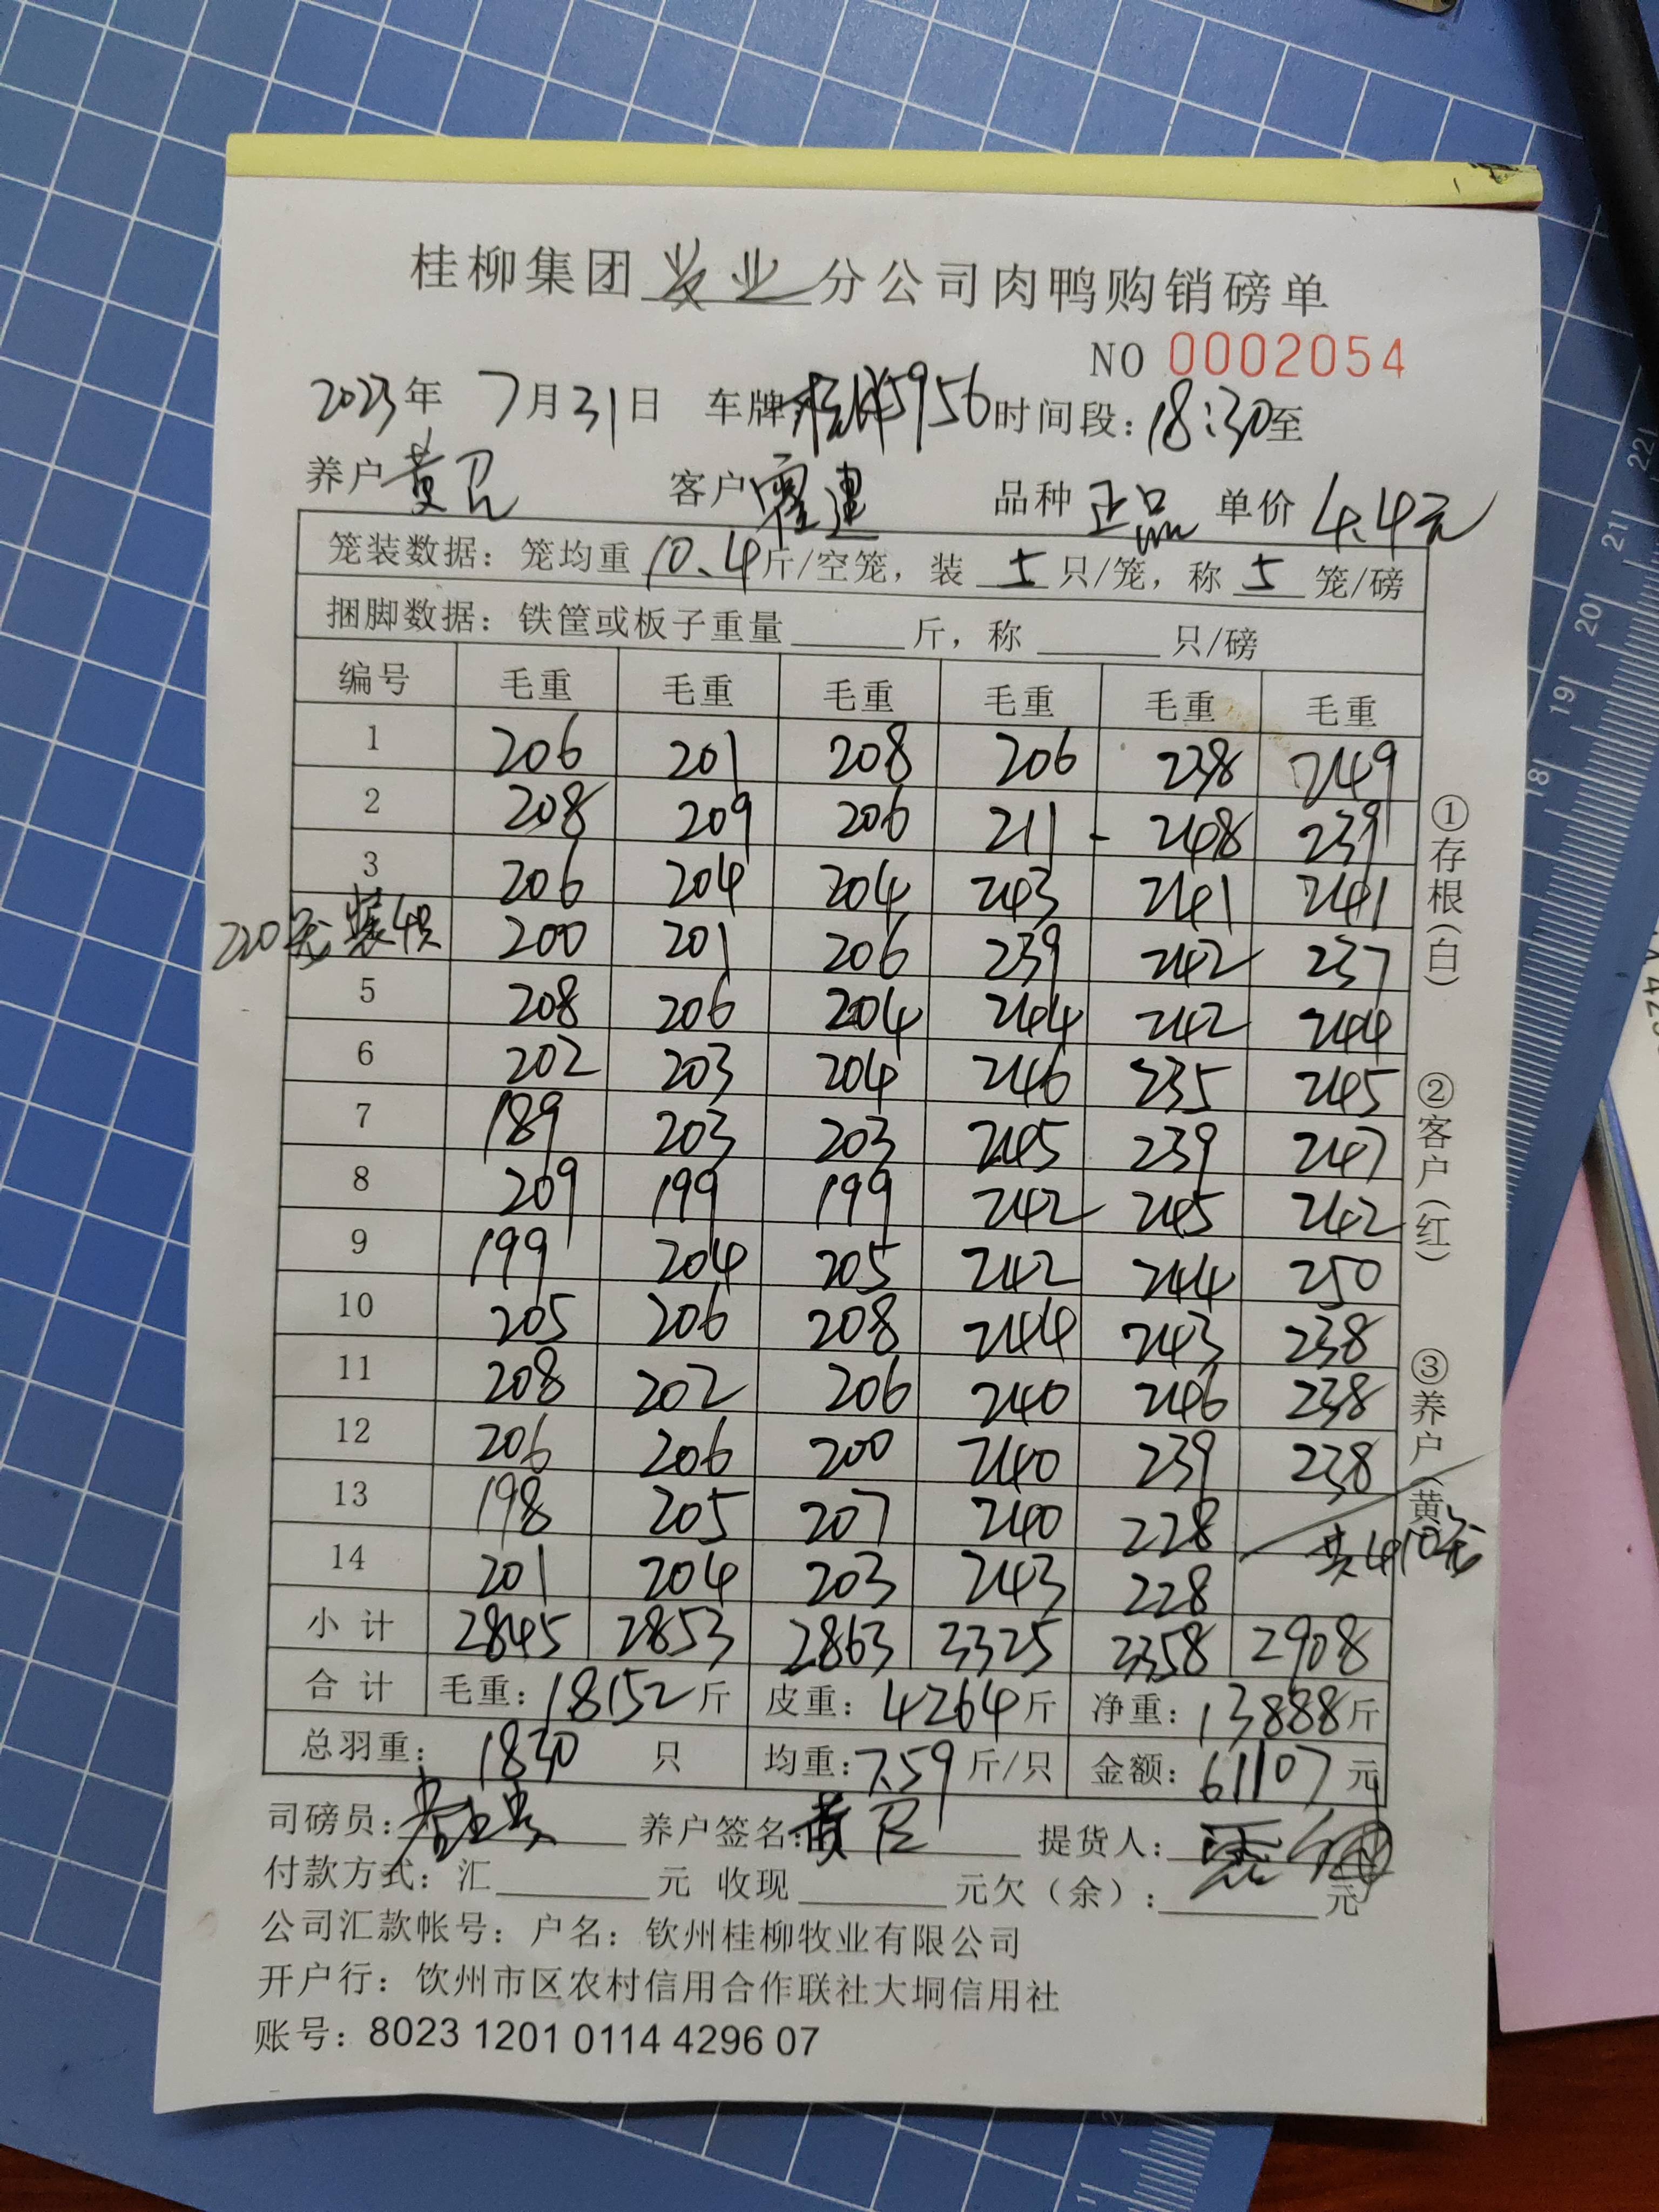 桂柳集团 农业 分公司肉鸭购销磅单
NO 0002054
2023年 7月31日 车牌 5956 时间段：18:30至
养户 黄 客户 霍 品种 正品 单价 4.4元
笼装数据：笼均重 10.4 斤/空笼，装 5 只/笼，称 5 笼/磅
捆脚数据：铁筐或板子重量 斤，称 只/磅
编号 毛重 毛重 毛重 毛重 毛重 毛重
1 206 201 208 206 238 249
2 208 209 206 211 - 248 239
3 206 204 204 243 241 241
220元 装4只 200 201 206 239 242 237
5 208 206 204 244 242 244
6 202 203 204 246 235 245
7 189 203 203 245 239 247
8 209 199 199 242 245 242
9 199 204 205 242 244 250
10 205 206 208 244 243 238
11 208 202 206 240 246 238
12 206 206 200 240 239 238
13 198 205 207 240 228
14 201 204 203 243 228 共410
小计 2845 2853 2863 3325 3358 2908
合计 毛重：18152斤 皮重：4264斤 净重：13888斤
总羽重：1830 只 均重：7.59斤/只 金额：61107元
司磅员： 养户签名：黄 提货人：
付款方式：汇 元 收现 元欠（余）： 元
公司汇款帐号：户名：钦州桂柳牧业有限公司
开户行：饮州市区农村信用合作联社大垌信用社
账号：8023 1201 0114 4296 07
①存根（白） ②客户（红） ③养户（黄）
22
21
20
19
18